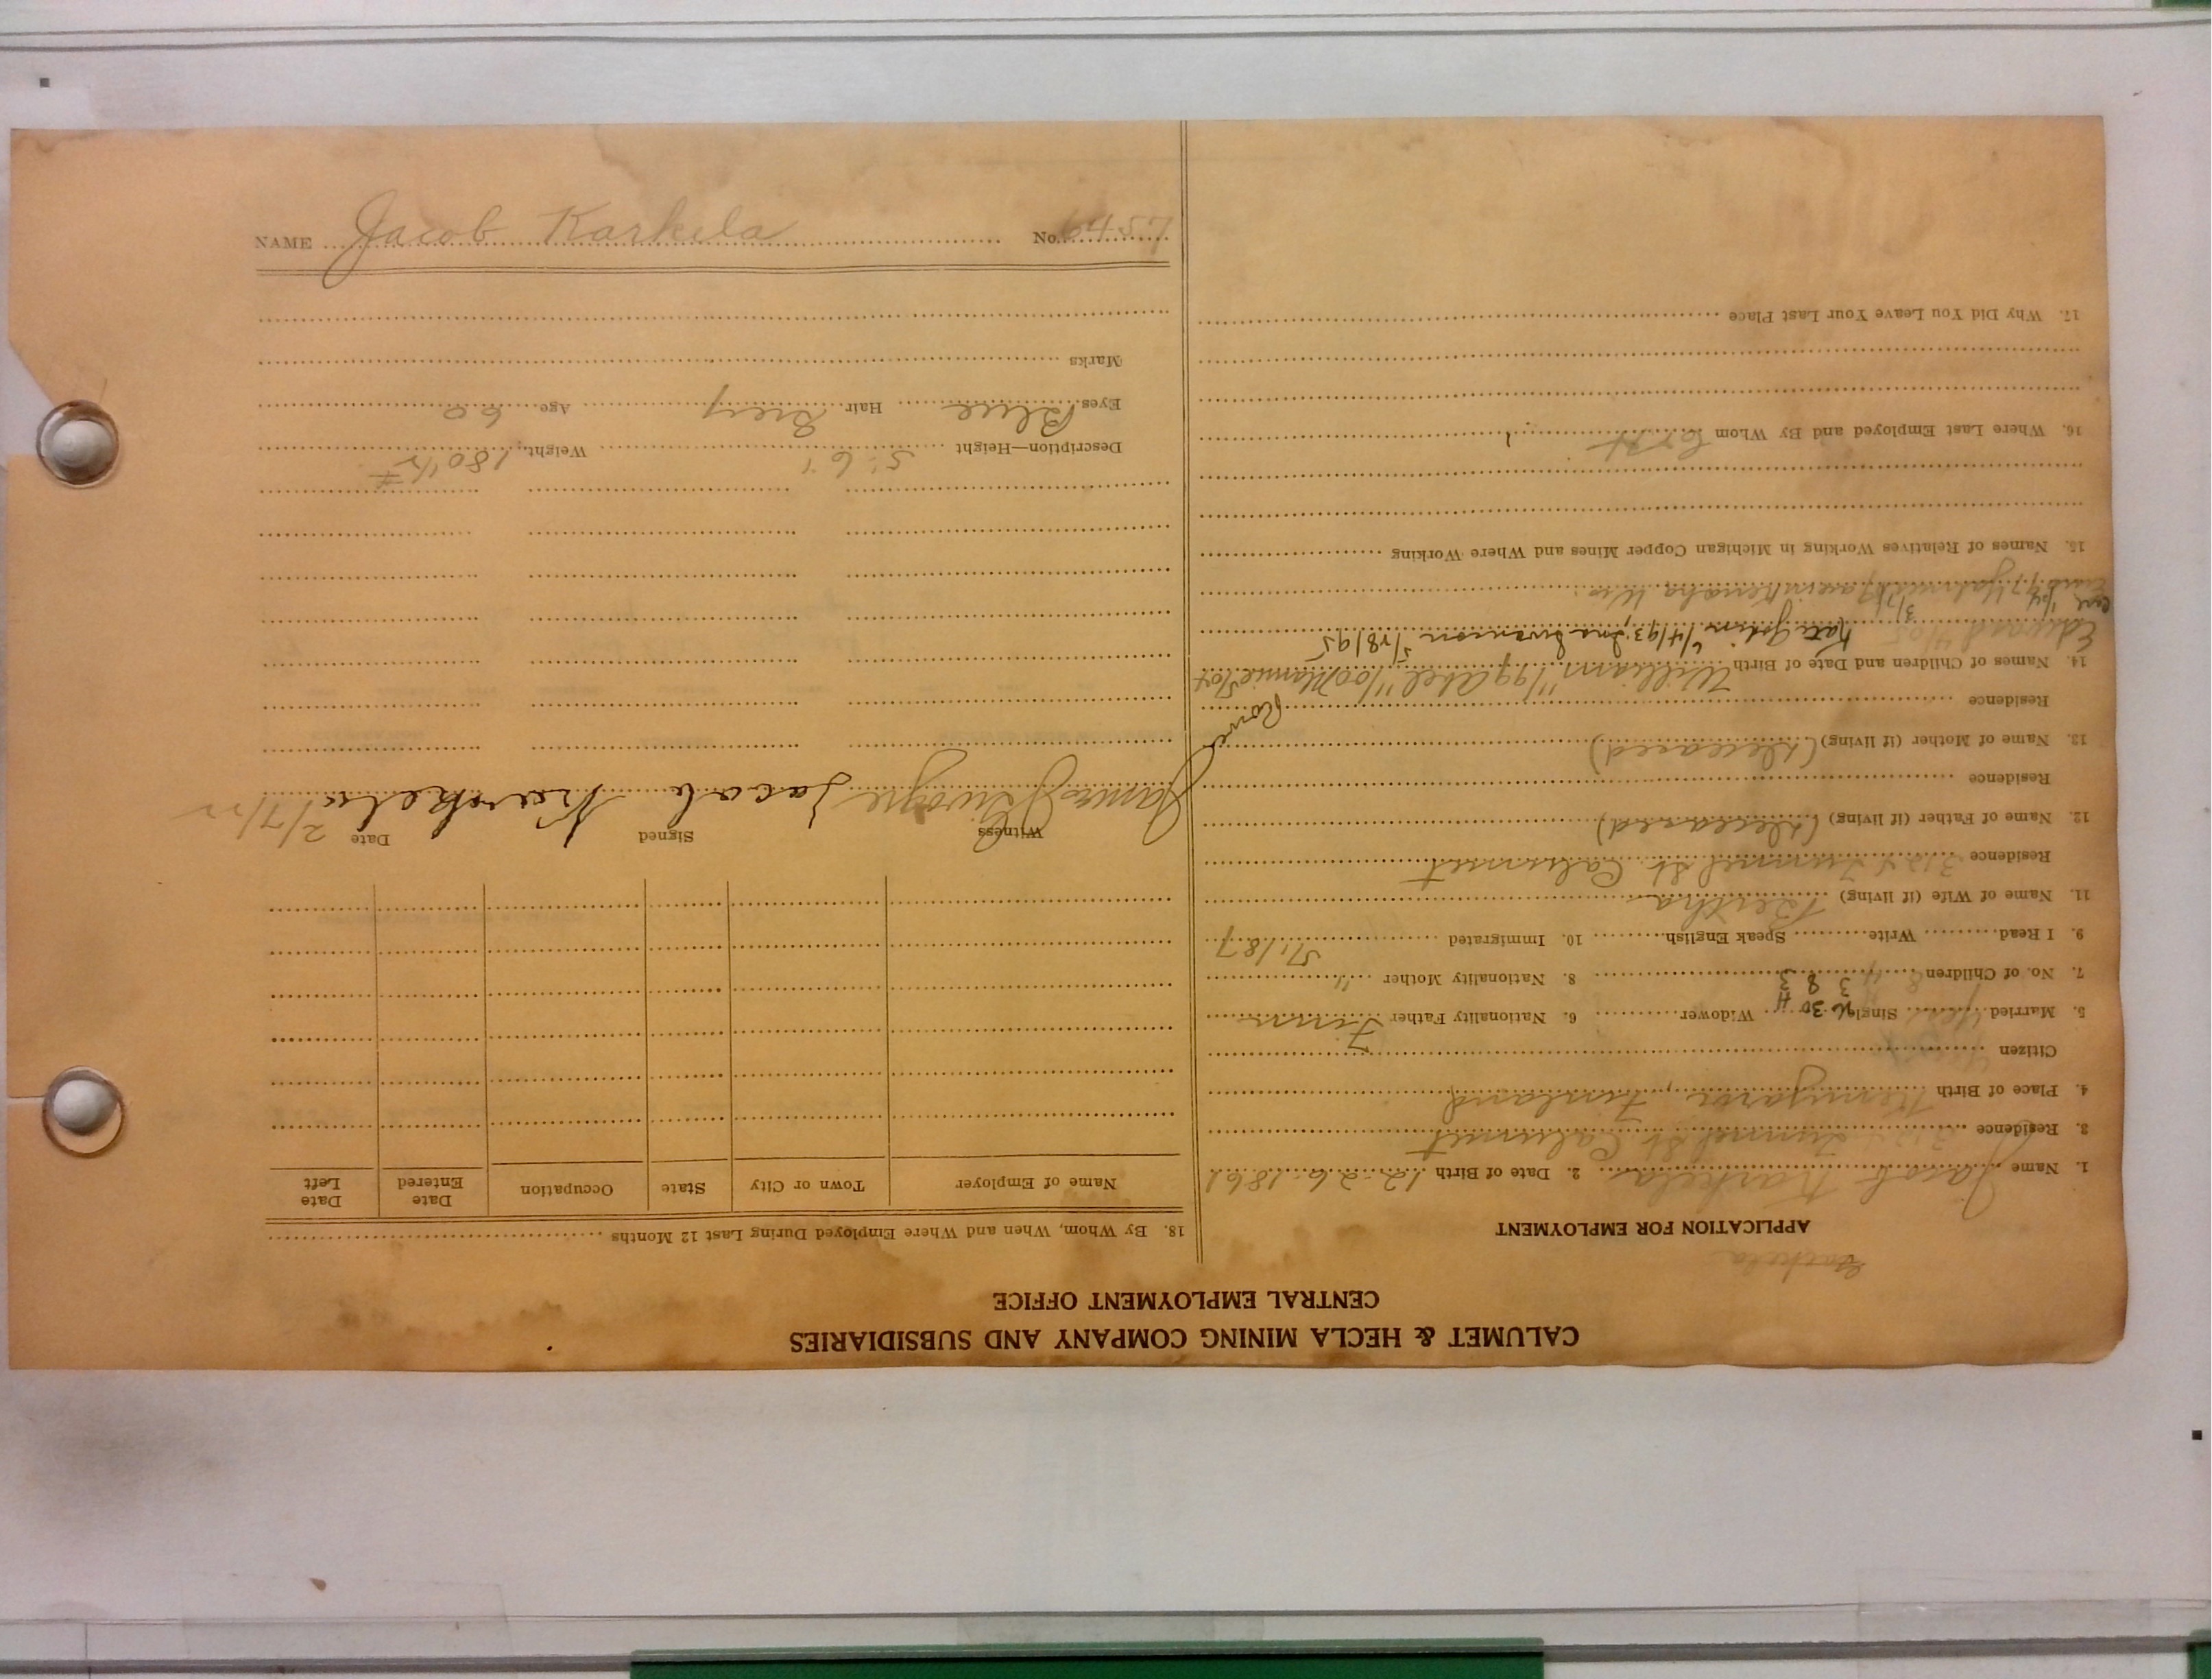 CALUMET & HECLA MINING COMPANY AND SUBSIDIARIES
CENTRAL EMPLOYMENT OFFICE
APPLICATION FOR EMPLOYMENT
1. Name Jacob Karkela 2. Date of Birth 12-26-1861
3. Residence Tunnel St. Calumet
4. Place of Birth Kemijarvi, Finland
Citizen
5. Married Single Widower 6. Nationality Father Finn
7. No. of Children 8 8. Nationality Mother "
9. I Read Write Speak English 10. Immigrated
11. Name of Wife (if living) Bertha
Residence Tunnel St. Calumet
12. Name of Father (if living) (deceased)
Residence
13. Name of Mother (if living) (deceased)
Residence
14. Names of Children and Date of Birth William 11/99 Abel 11/00 Mamie
Edward 4/05 6/4/93, Ina Swanson 5/18/95
15. Names of Relatives Working in Michigan Copper Mines and Where Working
16. Where Last Employed and By Whom
17. Why Did You Leave Your Last Place
18. By Whom, When and Where Employed During Last 12 Months
Name of Employer Town or City State Occupation Date Entered Date Left
Witness Signed Date
James Jacob Karkela 2/7/22
Description—Height 5'.6" Weight 180 1/2 #
Eyes Blue Hair Grey Age 60
Marks
NAME Jacob Karkela No. 6457